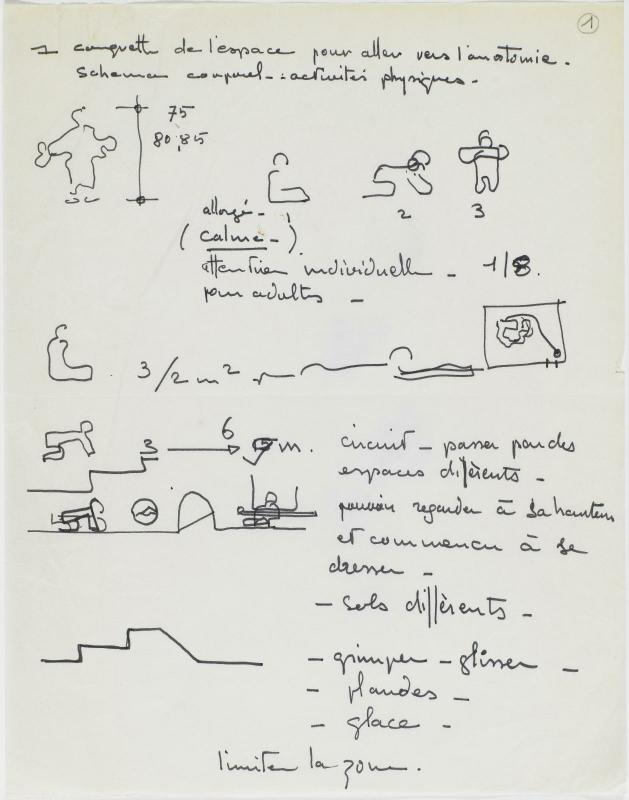 1
1 conquette de l'espace pour aller vers l'anatomie.
Schemam corporel - : activités physiques -
75
80,85
2
3
allongé -
( calme - )
attention individuelle - 1/8.
pour adultes -
3/2 m²
6
3 → m.
circuit - passer par des
espaces différents -
pouvoir regarder à sa hauteur
et commencer à se
dresser -
- sols différents -
- grimper - glisser -
-
- glace -
limiter la zone.